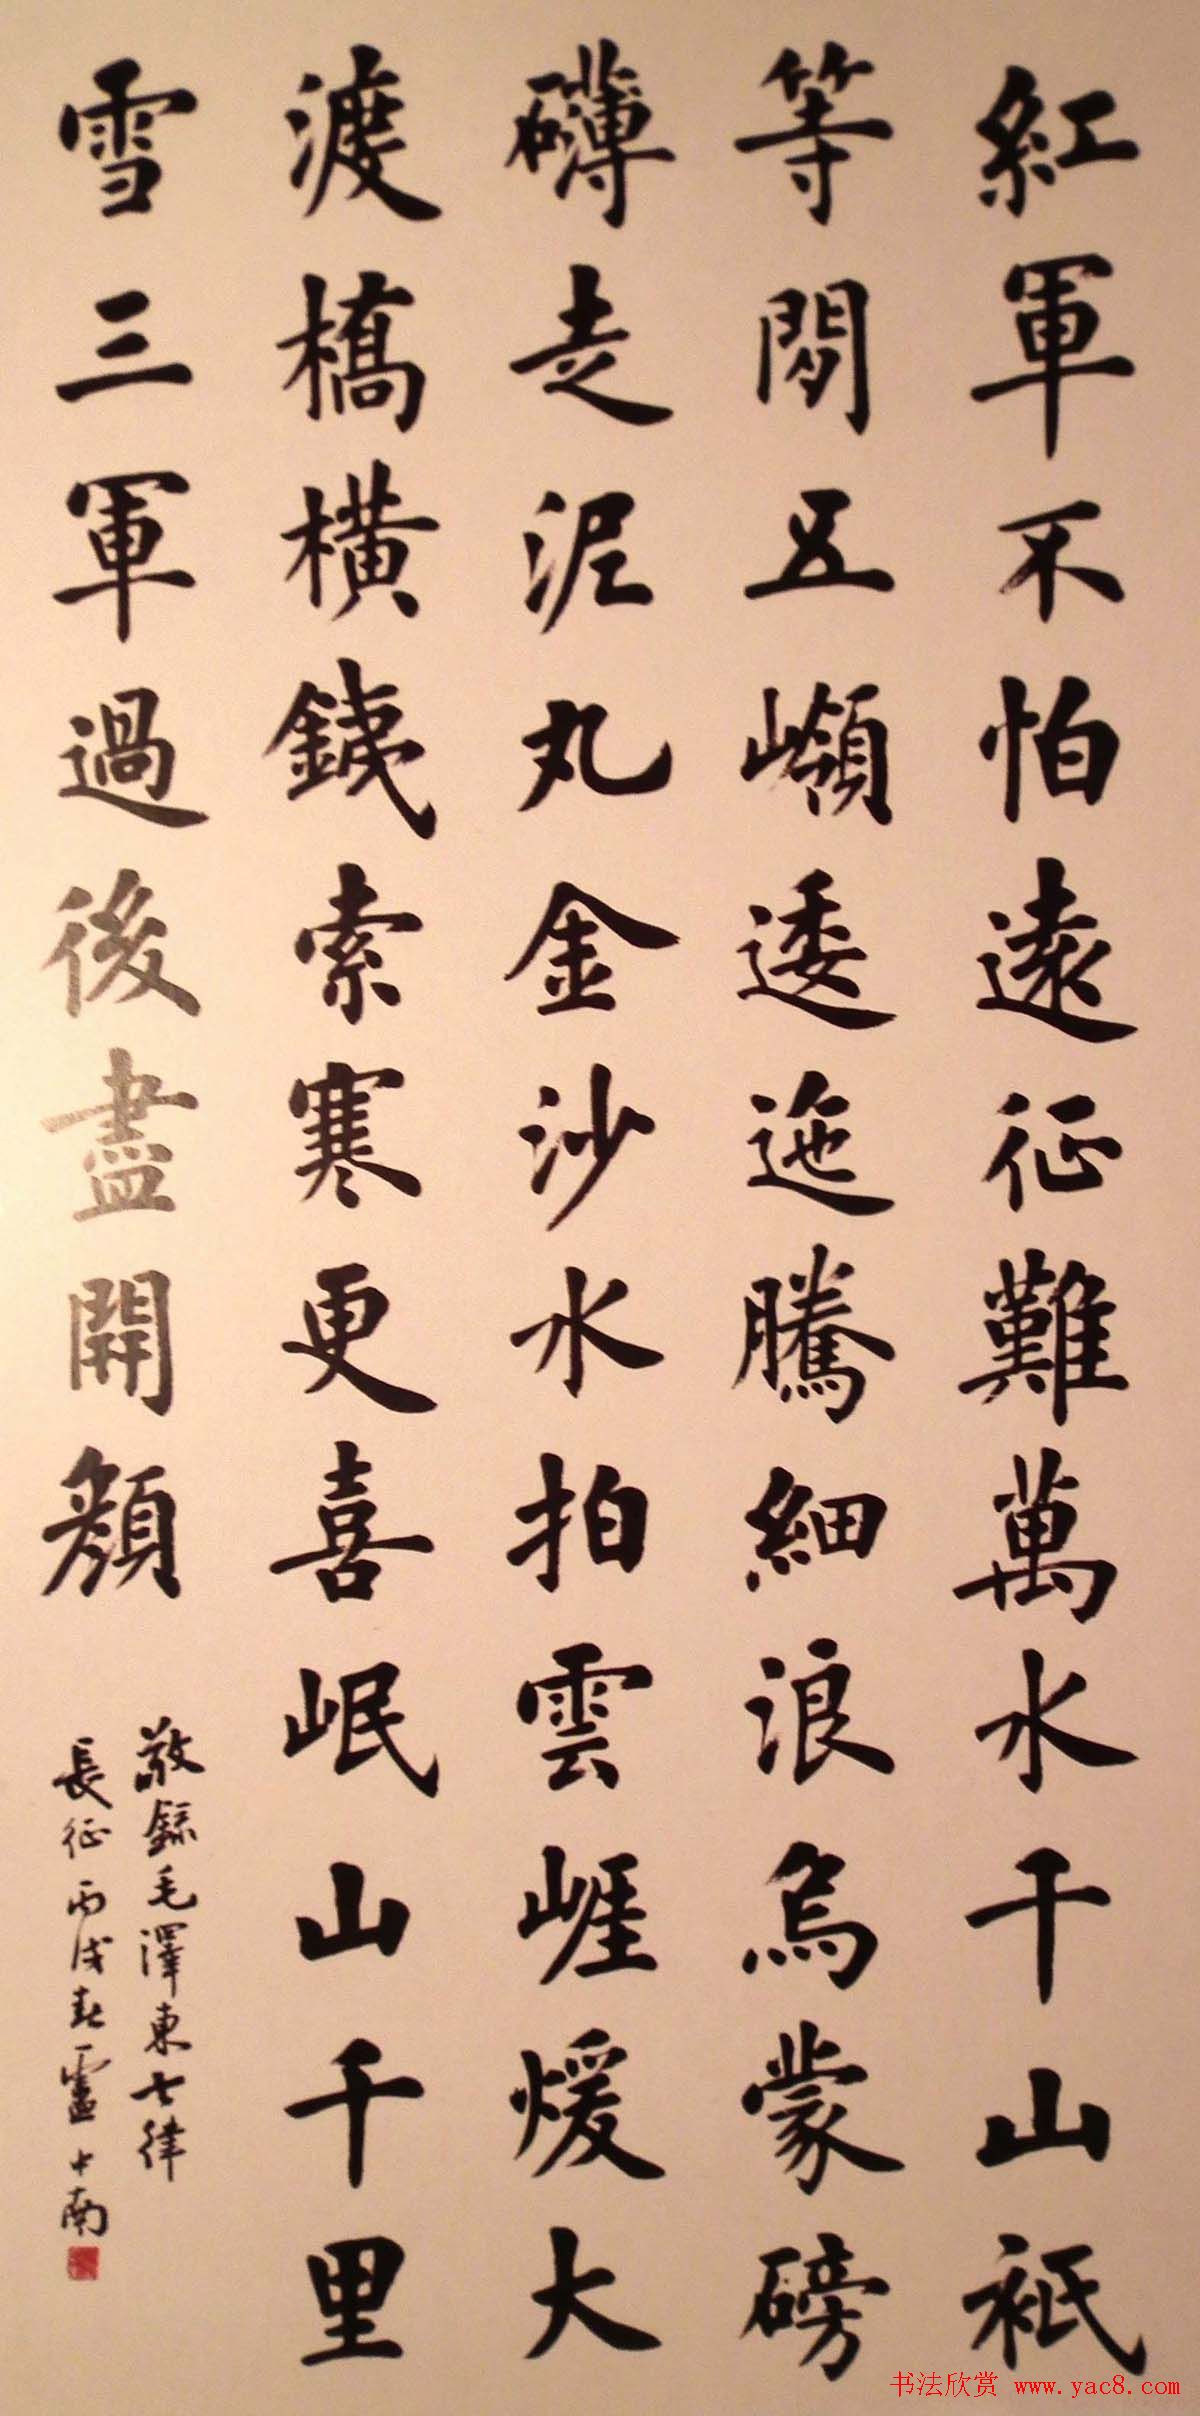 紅軍不怕遠征難萬水千山祇
等閒五嶺逶迤騰細浪烏蒙磅
礴走泥丸金沙水拍雲崖煖大
渡橋橫鐵索寒更喜岷山千里
雪三軍過後盡開顏
敬錄毛澤東七律
長征丙戌春盧中南
书法欣赏 www.yac8.com